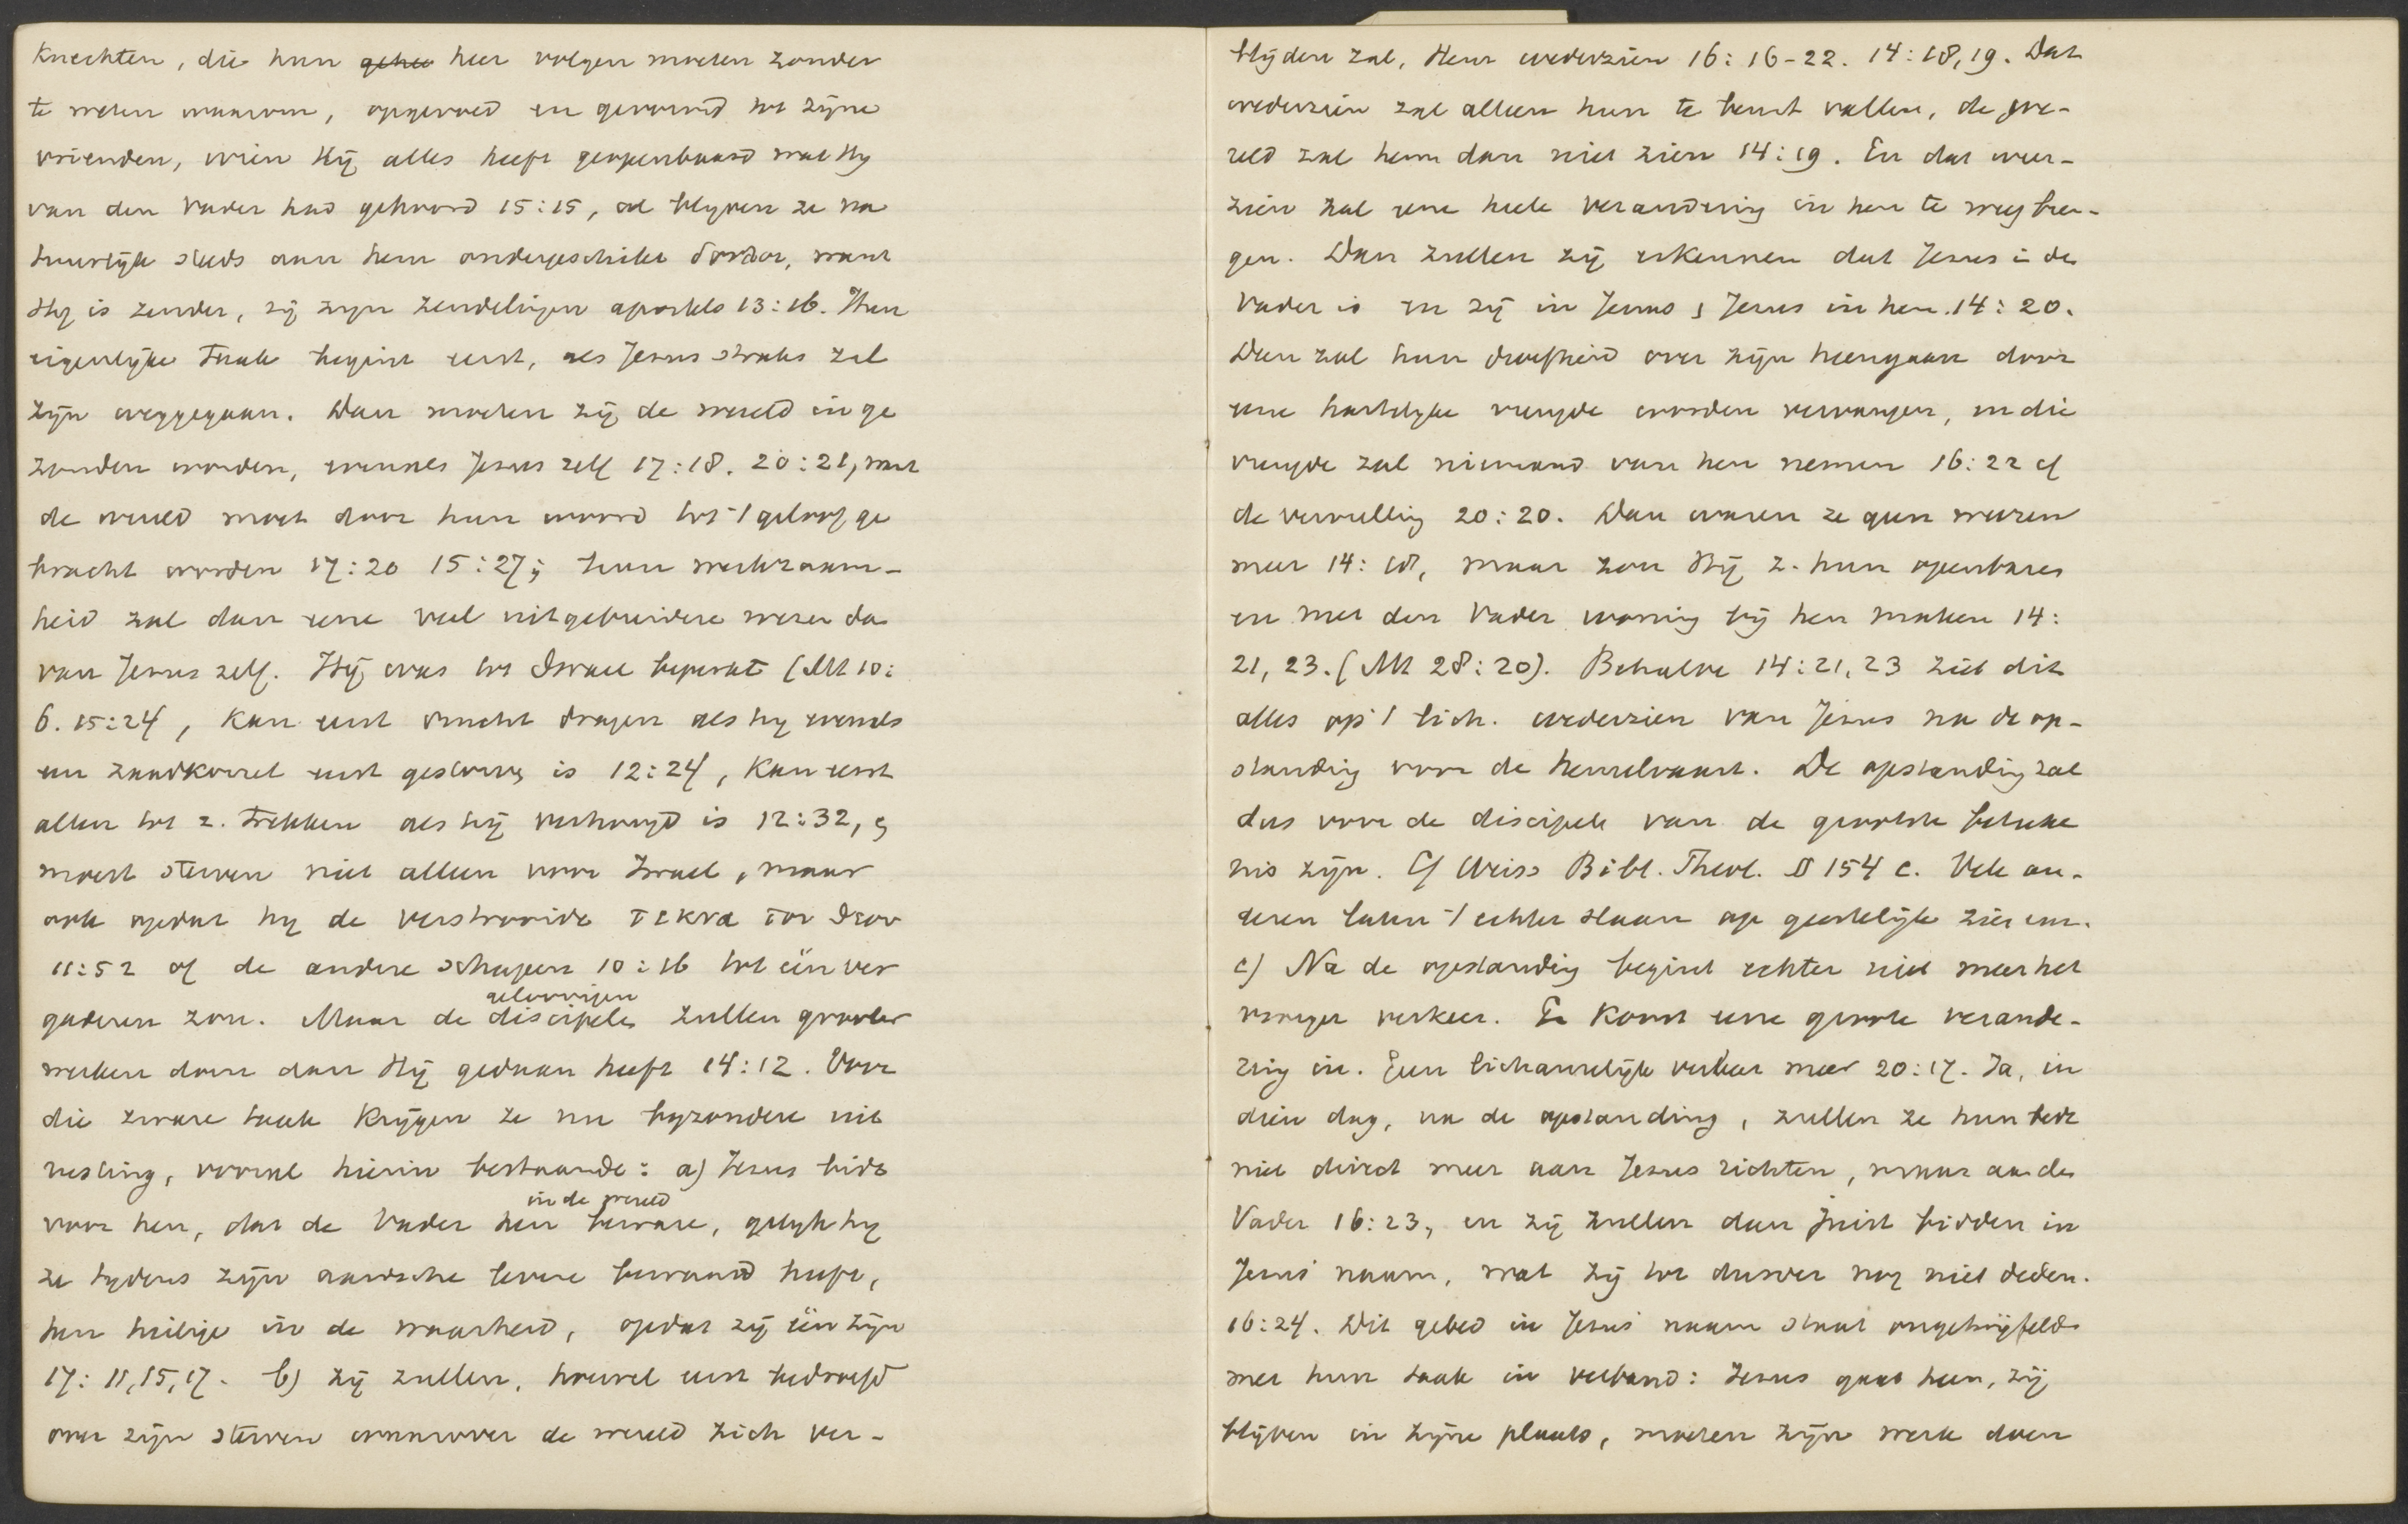 Knechten, die hun gehee heer volgen moeten zonder
te weten waarom, opgevoed en gevormd tot zijne
vrienden, wien Hij alles heeft geopenbaard wat Hy
van den Vader had gehoord 15:15, al blyven ze na
tuurlijk steeds aan hem ondergeschikt , want
Hy is zender, zij zyn zendelingen apostels 13:16. Hun
eigenlijke taak begint eerst, als Jezus straks zal
zijn weggegaan. Dan moeten zij de wereld in ge
zonden worden, evenals Jezus zelf 17:18. 20:21, want
de wereld moet door hun woord tot 't geloof ge
bracht worden 17:20 15:27; hun werkzaam-
heid zal dan eene veel uitgebreidere wezen dan
van Jezus zelf. Hij was tot Israel beperkt (Mt 10:
6. 15:24, kan eerst vrucht dragen als hy evenals
een zaadkorrel eerst gestorven is 12:24, kan eerst
allen tot z. trekken als hij verhoogd is 12:32, en
moest sterven niet alleen voor Israel, maar
ook opdat hy de verstrooide τεκνα του θεου
11:52 of de andere schapen 10:16 tot één ver
gaderen zou. Maar de discipelen geloovigen zullen grooter
werken doen dan Hij gedaan heeft 14:12. Voor
die zware taak krijgen ze nu byzondere uit
rusting, vooral hierin bestaande: a) Jezus bidt
voor hen, dat de Vader hen in de wereld beware, gelyk hy
ze tydens zijn aardsche leven bewaard heeft,
hen heilige in de waarheid, opdat zij één zijn
17: 11,15,17. b) zij zullen, hoewel eerst bedroefd
over zijn sterven waarover de wereld zich ver-
blijden zal, Hem wederzien 16: 16-22. 14:18,19. Dat
wederzien zal alleen hun te beurt vallen, de we-
reld zal hem dan niet zien 14:19. En dat weer-
zien zal eene heele verandering in hen te weeg bren-
gen. Dan zullen zij erkennen dat Jezus in den
Vader is en zij in Jezus en Jezus in hen. 14: 20.
Dan zal hun droefheid over zijn heengaan door
eene hartelyke vreugde worden vervangen, en die
vreugde zal niemand van hen nemen 16:22 cf
de vervulling 20:20. Dan waren ze geen weezen
meer 14: 18, maar zou Hij z. hun openbaren
en met den Vader woning bij hen maken 14:
21, 23. (Mt 28:20). Behalve 14:21,23 ziet dit
alles op 't lich. wederzien van Jezus na de op-
standing voor de hemelvaart. De opstanding zal
dus voor de discipels van de grootste beteeke
nis zijn. Cf Weiss Bibl. Theol. § 154 c. Vele an-
deren laten 't echter slaan op geestelijk zien enz.
c) Na de opstanding begint echter niet meer het
vroeger verkeer. Er komt eene groote verande-
ring in. Geen lichamelijk verkeer meer 20:17. Ja, in
dien dag, na de opstanding, zullen ze hun bede
niet direct meer aan Jezus richten, maar aan den
Vader 16:23, en zij zullen dan juist bidden in
Jezus' naam, wat zij tot dusver nog niet deden.
16:24. Dit gebed in Jezus' naam staat ongetwijfeld
met hun taak in verband: Jezus gaat heen, zij
blijven in zijne plaats, moeten zijn werk doen